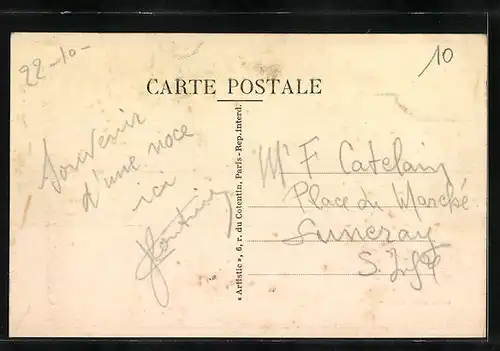 22-10-
10
CARTE POSTALE
Souvenir
d'une noce
ici
« Artistic », 6, r. du Cotentin, Paris - Rep. Interd.
Mr F Catelain
Place du Marché
Luneray
S. Inf